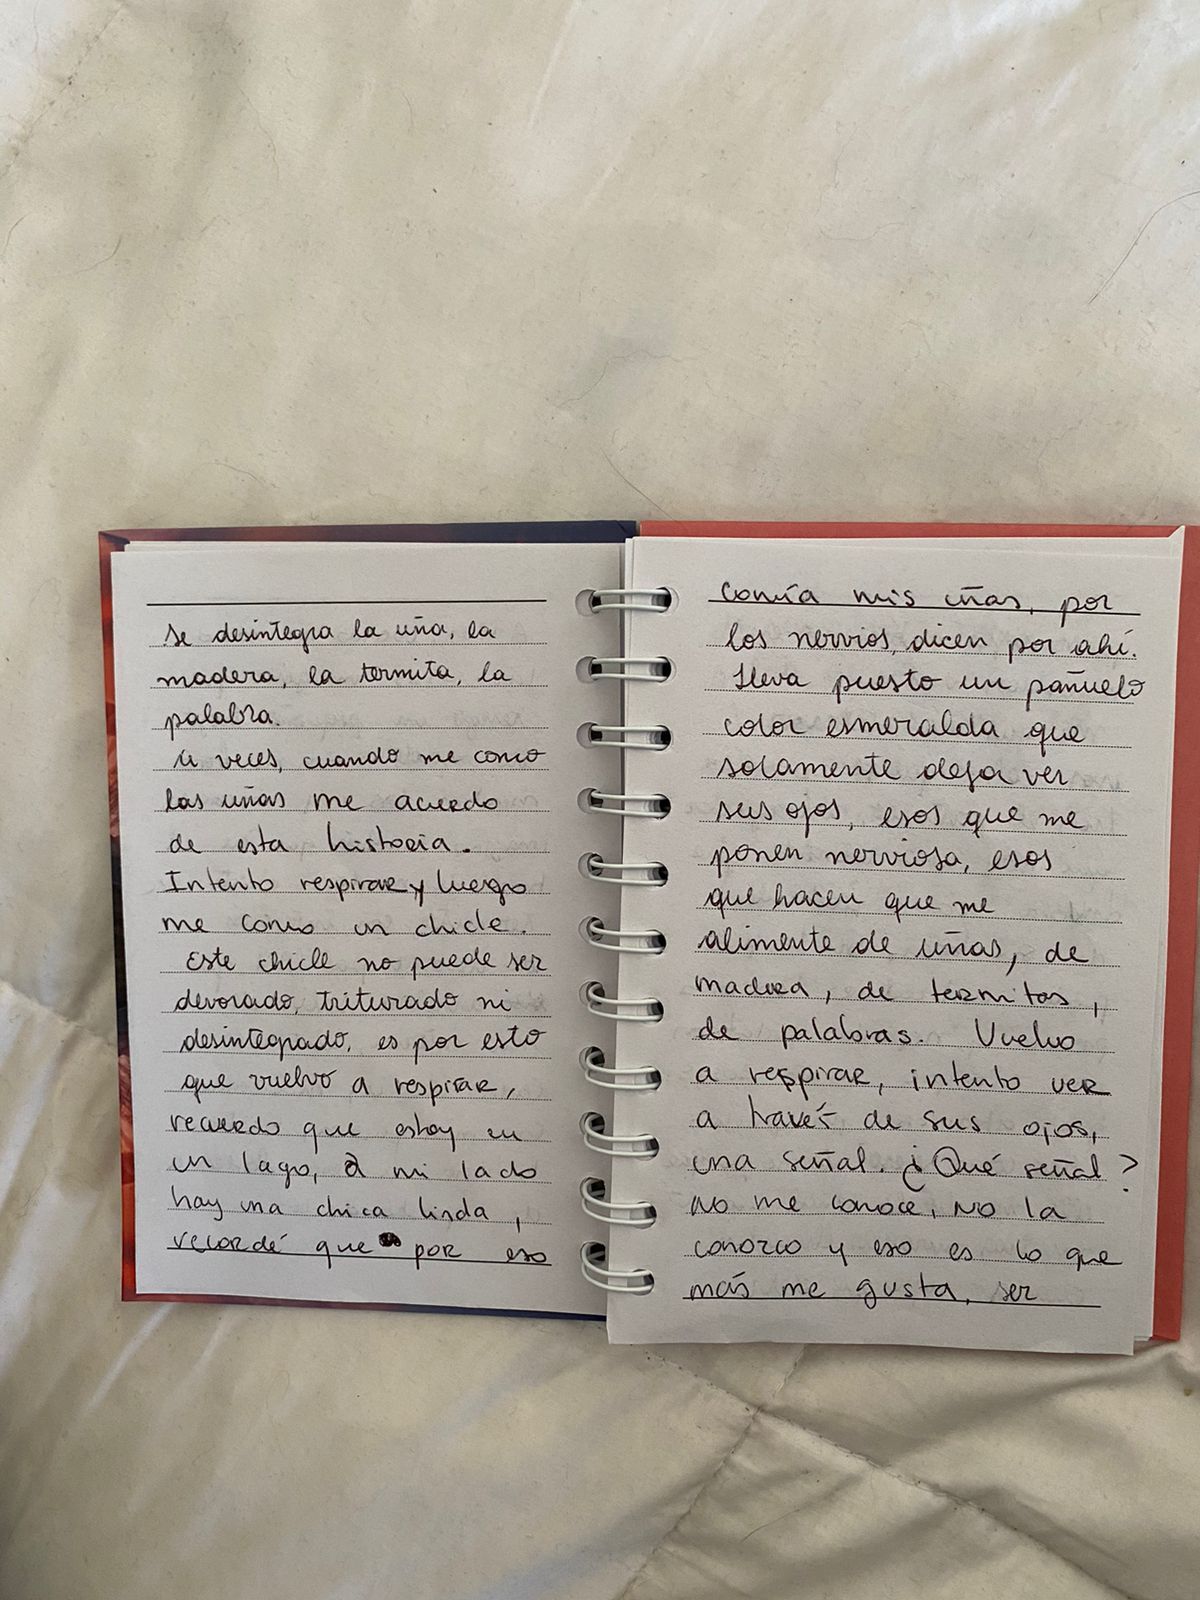 Se desintegra la uña, la
madera, la termita, la
palabra.
A veces, cuando me como
las uñas me acuerdo
de esta historia.
Intento respirar y luego
me como un chicle.
Este chicle no puede ser
devorado, triturado ni
desintegrado, es por esto
que vuelvo a respirar,
recuerdo que estoy en
un lago, a mi lado
hay una chica linda,
recordé que por eso
comía mis uñas, por
los nervios, dicen por ahí.
Lleva puesto un pañuelo
color esmeralda que
solamente deja ver
sus ojos, esos que me
ponen nerviosa, esos
que hacen que me
alimente de uñas, de
madera, de termitas,
de palabras. Vuelvo
a respirar, intento ver
a través de sus ojos,
una señal. ¿Qué señal?
No me conoce, no la
conozco y eso es lo que
más me gusta, ser